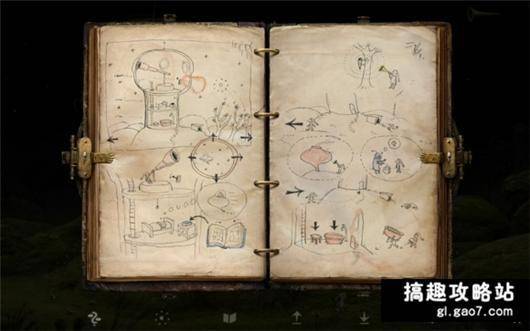 搞趣攻略站
gl.gao7.com